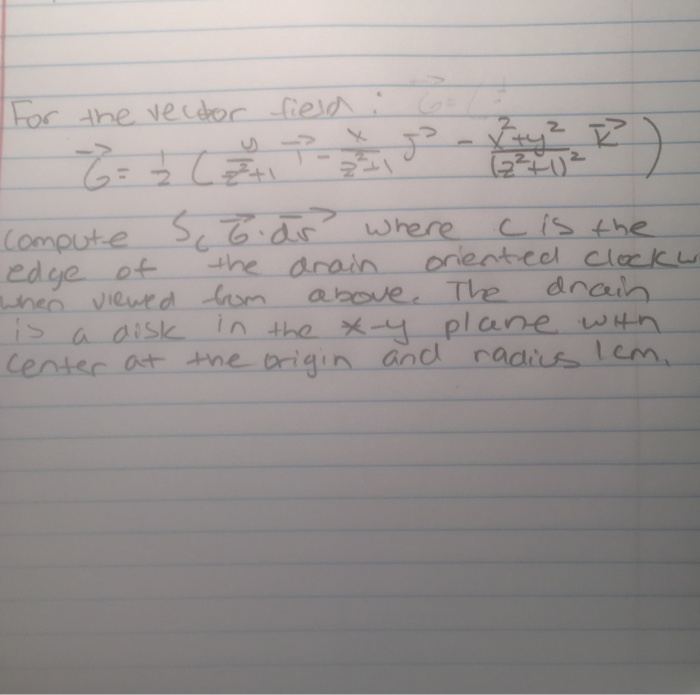 For the vector field :
G⃗ = 1/2 ( y/z²+1 i⃗ - x/z²+1 j⃗ - x²+y²/(z²+1)² k⃗ )
Compute ∫c G⃗ · dr⃗ where C is the
edge of the drain oriented clockw
when viewed from above. The drain
is a disk in the x-y plane with
center at the origin and radius 1cm.